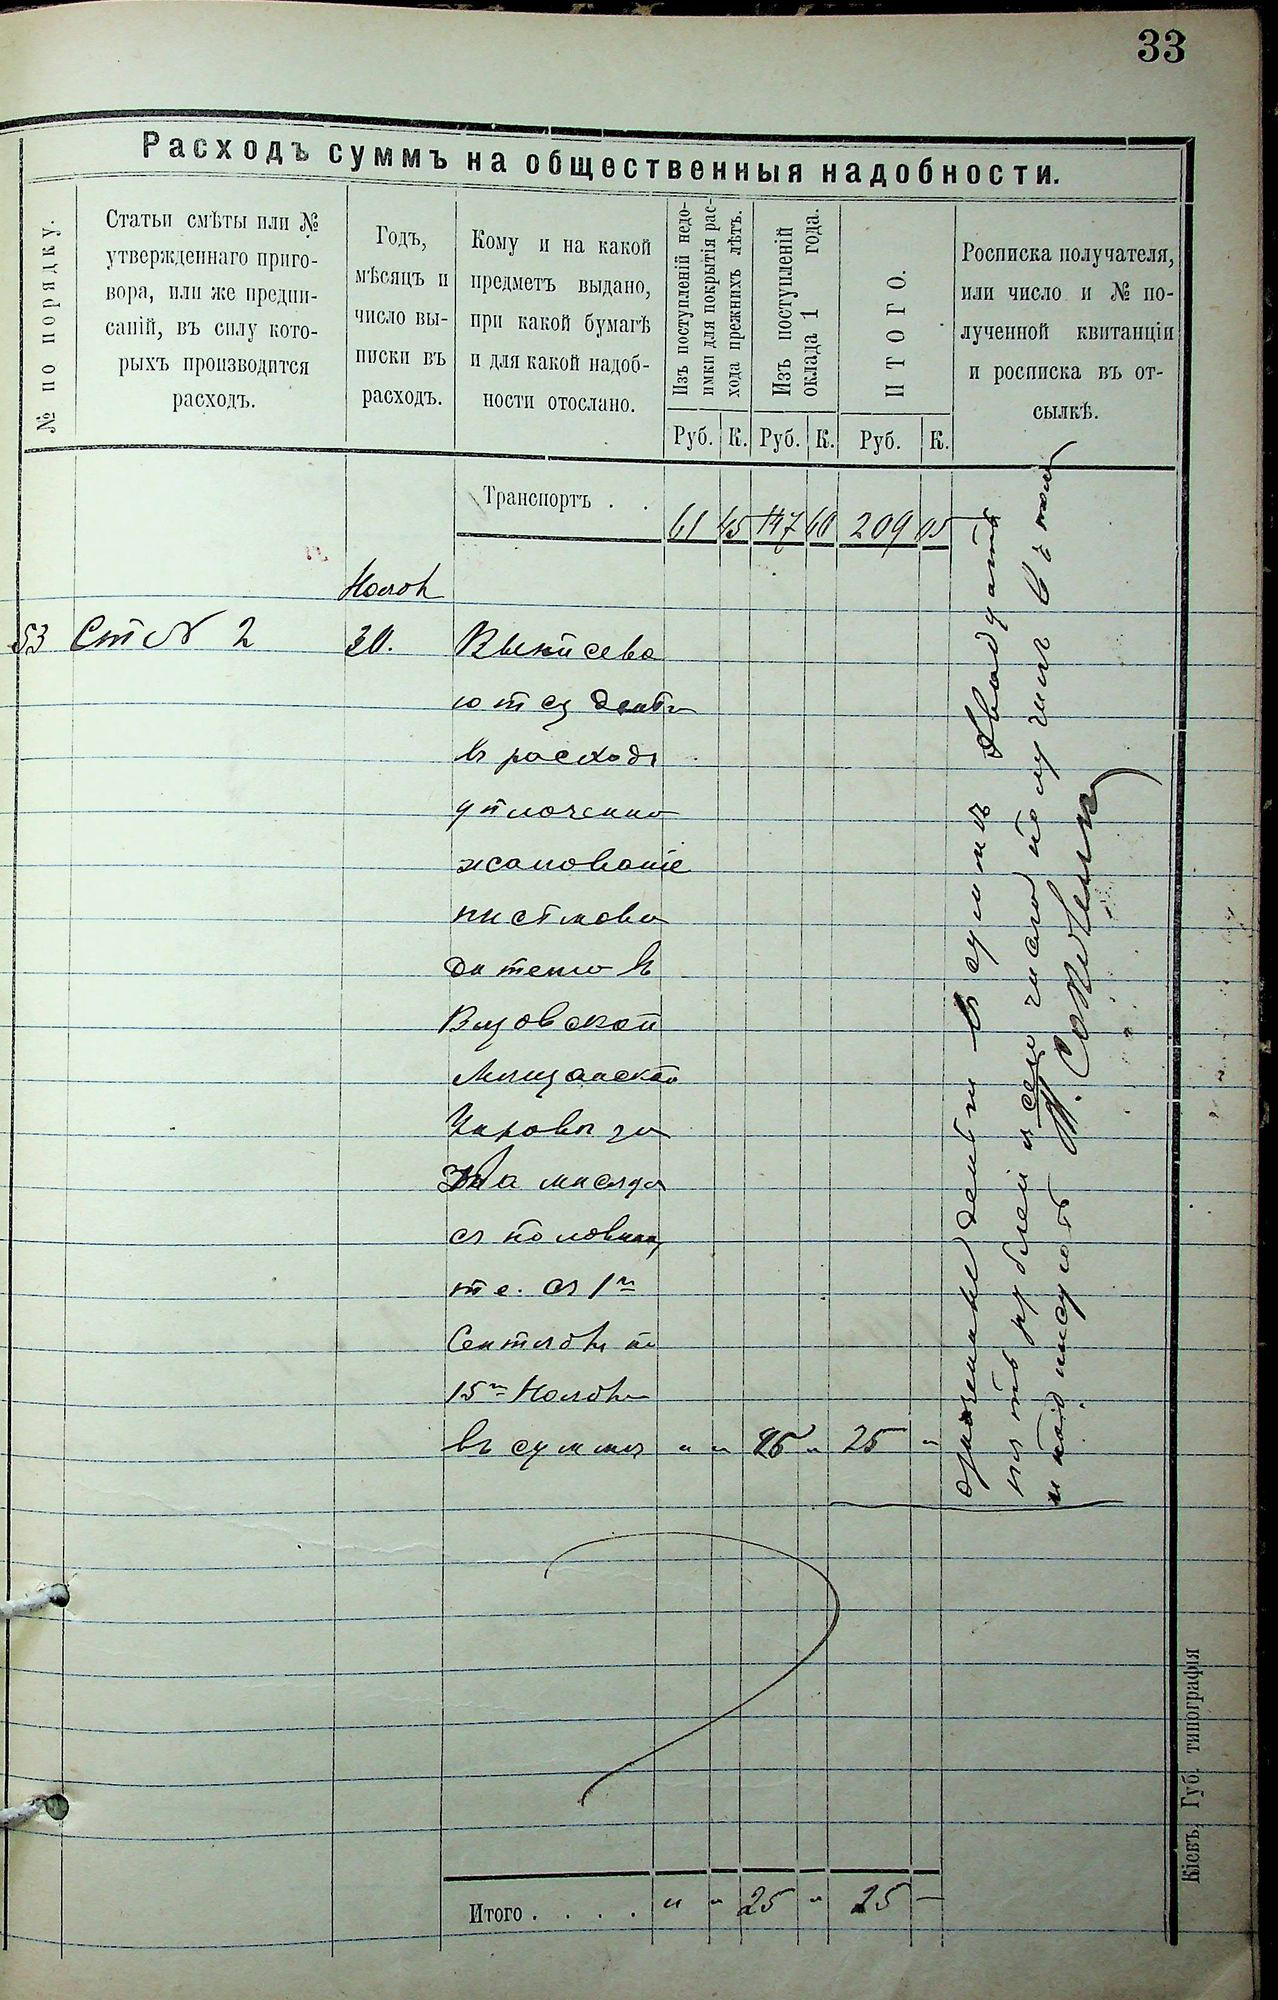 33
Расходъ суммъ на общественныя надобности.
№ по порядку.
Статьи смѣты или №
утвержденнаго приго-
вора, или же предпи-
саній, въ силу кото-
рыхъ производится
расходъ.
Годъ,
мѣсяцъ и
число вы-
писки въ
расходъ.
Кому и на какой
предметъ выдано,
при какой бумагѣ
и для какой надоб-
ности отослано.
Изъ поступленій недо-
имки для покрытія рас-
хода прежнихъ лѣтъ.
Изъ поступленій
оклада 1 года.
ИТОГО.
Росписка получателя,
или число и № по-
лученной квитанціи
и росписка въ от-
сылкѣ.
Руб. К. Руб. К. Руб. К.
Транспортъ . . 61 45 147 60 209 05
Нояб
53 Ст № 2 30. Выписева
ются деньги
въ расходъ
уплочено
жалованіе
писмово
дителю въ
Мещанской
Управы за
два месяца
съ половиной
т е. съ 1го
Сентября по
15го Ноября
въ сумме " " 25 " 25 "
деньги въ сумме двадцать
пять рублей сего числа получилъ в чом
и подписуюсь
Итого . . . . " " 25 " 25 —
Кіевъ, Губ. типографія